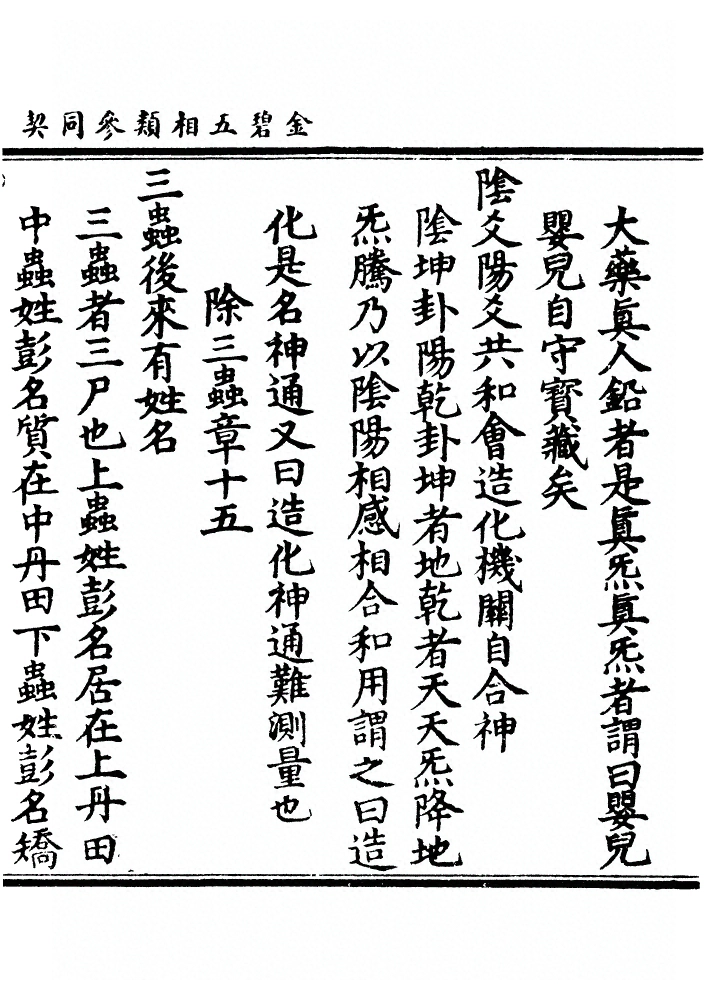 金碧五相類參同契
大藥眞人鉛者是眞炁眞炁者謂曰嬰兒
嬰兒自守寳藏矣
陰爻陽爻共和會造化機關自合神
陰坤卦陽乾卦坤者地乾者天天炁降地
炁騰乃以陰陽相感相合和用謂之曰造
化是名神通又曰造化神通難測量也
除三蟲章十五
三蟲後來有姓名
三蟲者三尸也上蟲姓彭名居在上丹田
中蟲姓彭名質在中丹田下蟲姓彭名矯